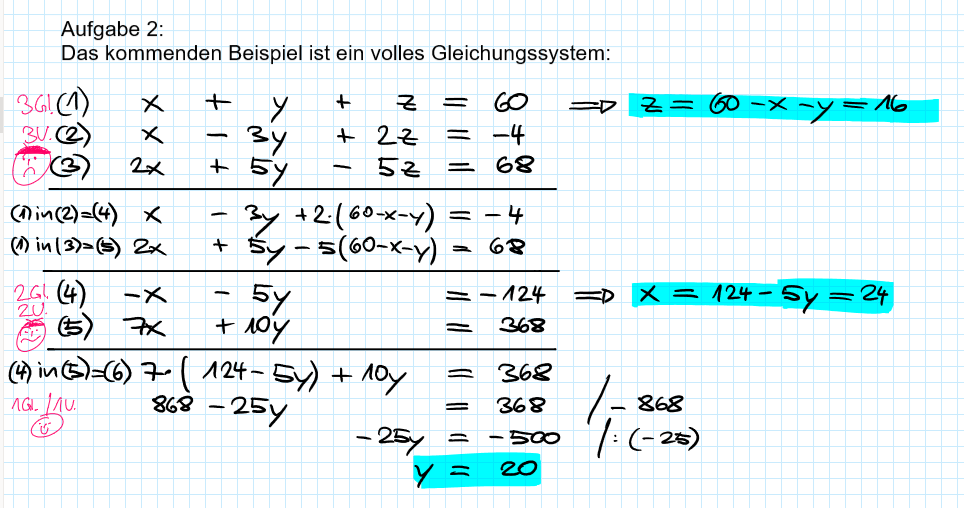 Aufgabe 2:
Das kommenden Beispiel ist ein volles Gleichungssystem:
3Gl. (1) x + y + z = 60 => z = 60 - x - y = 16
3V. (2) x - 3y + 2z = -4
(3) 2x + 5y - 5z = 68
(1) in (2) = (4) x - 3y + 2·(60-x-y) = -4
(1) in (3) = (5) 2x + 5y - 5(60-x-y) = 68
2Gl. (4) -x - 5y = -124 => x = 124 - 5y = 24
2V.
(5) 7x + 10y = 368
(4) in (5) = (6) 7·(124 - 5y) + 10y = 368
1Gl./1V. 868 - 25y = 368 / - 868
-25y = -500 /: (-25)
y = 20